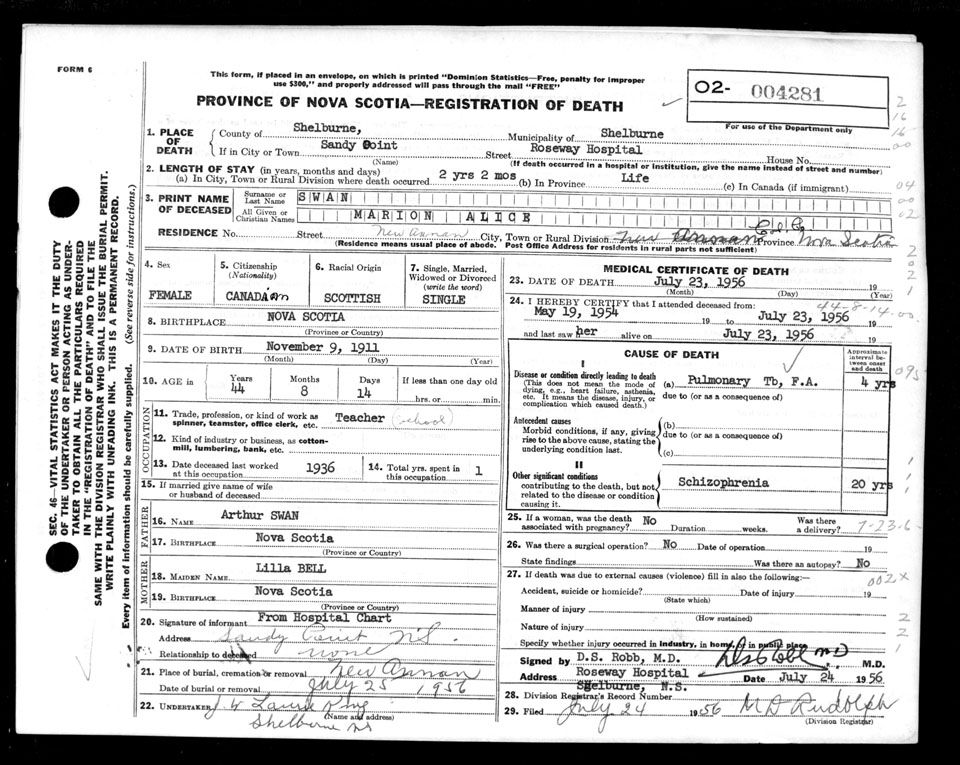 FORM 6
This form, if placed in an envelope, on which is printed "Dominion Statistics—Free, penalty for improper
use $300," and properly addressed will pass through the mail "FREE"
PROVINCE OF NOVA SCOTIA—REGISTRATION OF DEATH
02- 004281
For use of the Department only
1. PLACE OF DEATH
County of Shelburne, Municipality of Shelburne
If in City or Town Sandy Point Street Roseway Hospital House No.
(Name) (If death occurred in a hospital or institution, give the name instead of street and number)
2. LENGTH OF STAY (in years, months and days)
(a) In City, Town or Rural Division where death occurred 2 yrs 2 mos (b) In Province Life (c) In Canada (if immigrant)
3. PRINT NAME OF DECEASED
Surname or Last Name SWAN
All Given or Christian Names MARION ALICE
RESIDENCE No. Street New Annan City, Town or Rural Division New Annan Col Co Province Nova Scotia
(Residence means usual place of abode. Post Office Address for residents in rural parts not sufficient)
4. Sex
FEMALE
5. Citizenship
(Nationality)
CANADian
6. Racial Origin
SCOTTISH
7. Single, Married,
Widowed or Divorced
(write the word)
SINGLE
8. BIRTHPLACE NOVA SCOTIA
(Province or Country)
9. DATE OF BIRTH November 9, 1911
(Month) (Day) (Year)
10. AGE in Years 44 Months 8 Days 14 If less than one day old
hrs. or min.
OCCUPATION
11. Trade, profession, or kind of work as
spinner, teamster, office clerk, etc. Teacher (school)
12. Kind of industry or business, as cotton-
mill, lumbering, bank, etc.
13. Date deceased last worked
at this occupation 1936
14. Total yrs. spent in
this occupation 1
15. If married give name of wife
or husband of deceased
FATHER
16. NAME Arthur SWAN
17. BIRTHPLACE Nova Scotia
(Province or Country)
MOTHER
18. MAIDEN NAME Lilla BELL
19. BIRTHPLACE Nova Scotia
(Province or Country)
20. Signature of informant From Hospital Chart
Address Sandy Point N.S.
Relationship to deceased none
21. Place of burial, cremation or removal New Annan
Date of burial or removal July 25, 1956
22. UNDERTAKER J. W. Laurie King
(Name and address)
Shelburne NS
MEDICAL CERTIFICATE OF DEATH
23. DATE OF DEATH July 23, 1956 19
(Month) (Day) (Year)
24. I HEREBY CERTIFY that I attended deceased from:
44-8-14-00
May 19, 1954 19 to July 23, 1956 19
and last saw her alive on July 23, 1956 19
CAUSE OF DEATH
Approximate interval between onset and death
I
Disease or condition directly leading to death
(This does not mean the mode of
dying, e.g., heart failure, asthenia,
etc. It means the disease, injury, or
complication which caused death.)
(a) Pulmonary Tb, F.A. 4 yrs
due to (or as a consequence of)
Antecedent causes
Morbid conditions, if any, giving
rise to the above cause, stating the
underlying condition last.
(b)
due to (or as a consequence of)
(c)
II
Other significant conditions
contributing to the death, but not
related to the disease or condition
causing it.
Schizophrenia 20 yrs
25. If a woman, was the death
associated with pregnancy? No Duration weeks. Was there
a delivery?
7-23-6
26. Was there a surgical operation? No Date of operation 19
State findings Was there an autopsy? No
27. If death was due to external causes (violence) fill in also the following:—
002X
Accident, suicide or homicide? Date of injury 19
(State which)
Manner of injury
(How sustained)
Nature of injury
Specify whether injury occurred in industry, in home, or in public place
Signed by D.S. Robb, M.D. DS Robb MD M.D.
Address Roseway Hospital Date July 24 1956
Shelburne, N.S.
28. Division Registrar's Record Number
29. Filed July 24 1956 M D Rudolph
(Division Registrar)
SEC. 46 VITAL STATISTICS ACT MAKES IT THE DUTY
OF THE UNDERTAKER OR PERSON ACTING AS UNDER-
TAKER TO OBTAIN ALL THE PARTICULARS REQUIRED
IN THE "REGISTRATION OF DEATH" AND TO FILE THE
SAME WITH THE DIVISION REGISTRAR WHO SHALL ISSUE THE BURIAL PERMIT.
WRITE PLAINLY WITH UNFADING INK. THIS IS A PERMANENT RECORD.
Every item of information should be carefully supplied. (See reverse side for instructions.)